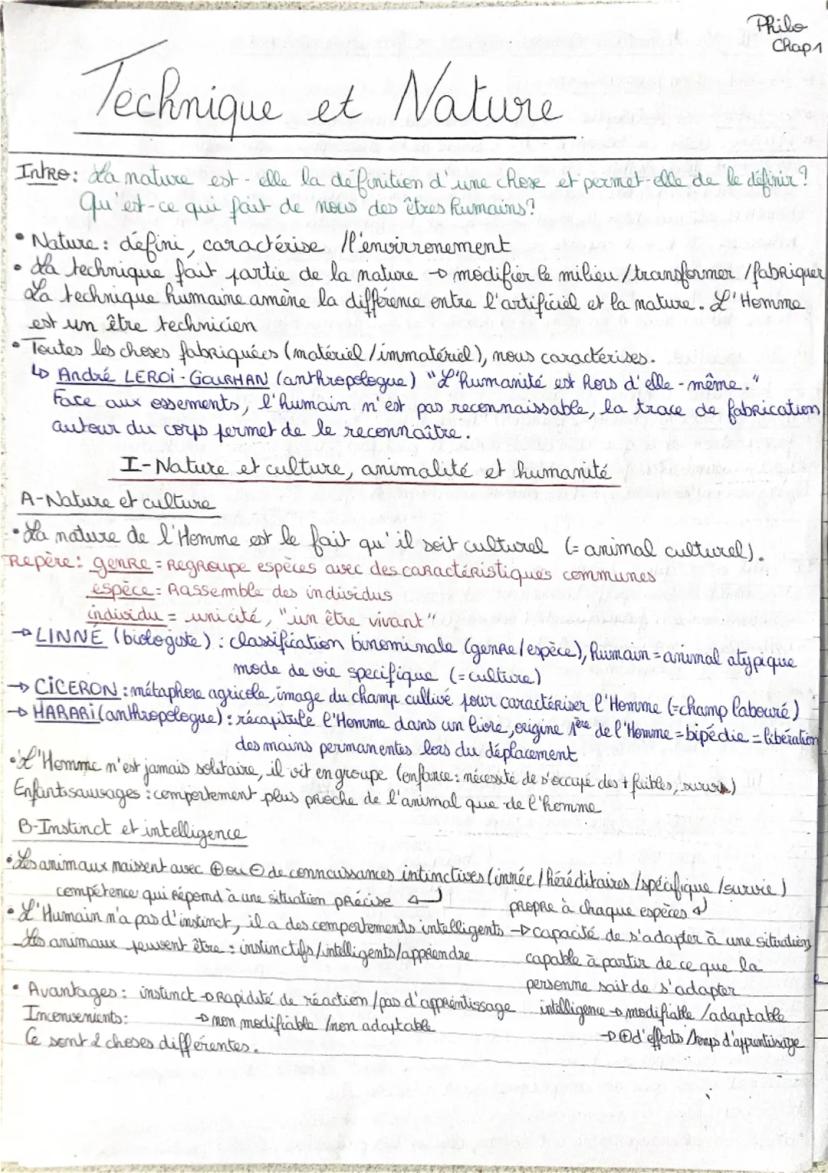 Philo
Chap 1
Technique et Nature
Intro : La nature est-elle la définition d'une chose et permet-elle de le définir ?
Qu'est-ce qui fait de nous des êtres humains ?
• Nature : défini, caractérise / l'environnement
• La technique fait partie de la nature → modifier le milieu / transformer / fabriquer
La technique humaine amène la différence entre l'artificiel et la nature. L'Homme
est un être technicien
• Toutes les choses fabriquées (matériel / immatériel), nous caractérises.
↳ André LEROI-GOURHAN (anthropologue) "L'humanité est hors d'elle-même."
Face aux ossements, l'humain n'est pas reconnaissable, la trace de fabrication
autour du corps permet de le reconnaître.
I- Nature et culture, animalité et humanité
A- Nature et culture
• La nature de l'Homme est le fait qu'il soit culturel (= animal culturel).
Repère : genre = Regroupe espèces avec des caractéristiques communes
espèce = Rassemble des individus
individu = unicité, "un être vivant"
→ LINNÉ (biologiste) : classification binominale (genre / espèce), humain = animal atypique
mode de vie spécifique (= culture)
→ CICERON : métaphore agricole, image du champ cultivé pour caractériser l'Homme (= champ labouré)
→ HARARI (anthropologue) : récapitule l'Homme dans un livre, origine 1ère de l'Homme = bipédie = libération
des mains permanentes lors du déplacement
• L'Homme n'est jamais solitaire, il vit en groupe (enfance : nécessité de s'occupé des + faibles, survie)
Enfants sauvages : comportement plus proche de l'animal que de l'homme
B- Instinct et intelligence
• Les animaux naissent avec ⊕ ou ⊖ de connaissances intinctives (innée / héréditaires / spécifique / survie)
compétence qui répond à une situation précise ↲ propre à chaque espèces ↲
• L'Humain n'a pas d'instinct, il a des comportements intelligents → capacité de s'adapter à une situation,
Les animaux peuvent être : instinctifs / intelligents / apprendre capable à partir de ce que la
personne sait de s'adapter
• Avantages : instinct → rapidité de réaction / pas d'apprentissage intelligence → modifiable / adaptable
Inconvenients : → non modifiable / non adaptable → ⊕ d'efforts / temps d'apprentissage
Ce sont 2 choses différentes.